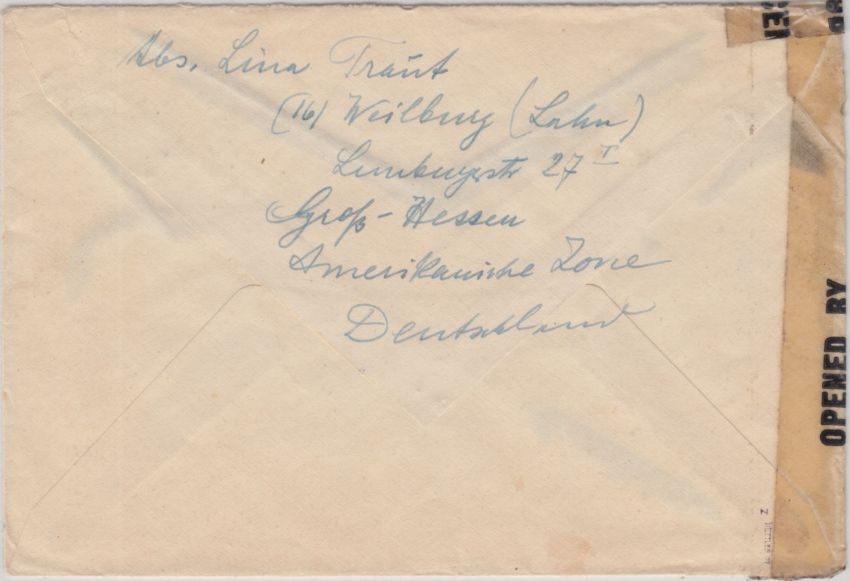 Abs. Lina Traut
(16) Weilburg (Lahn)
Limburgerstr 27 I
Groß-Hessen
Amerikanische Zone
Deutschland
OPENED BY